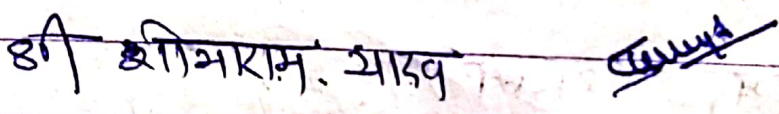 श्री शोभाराम यादव